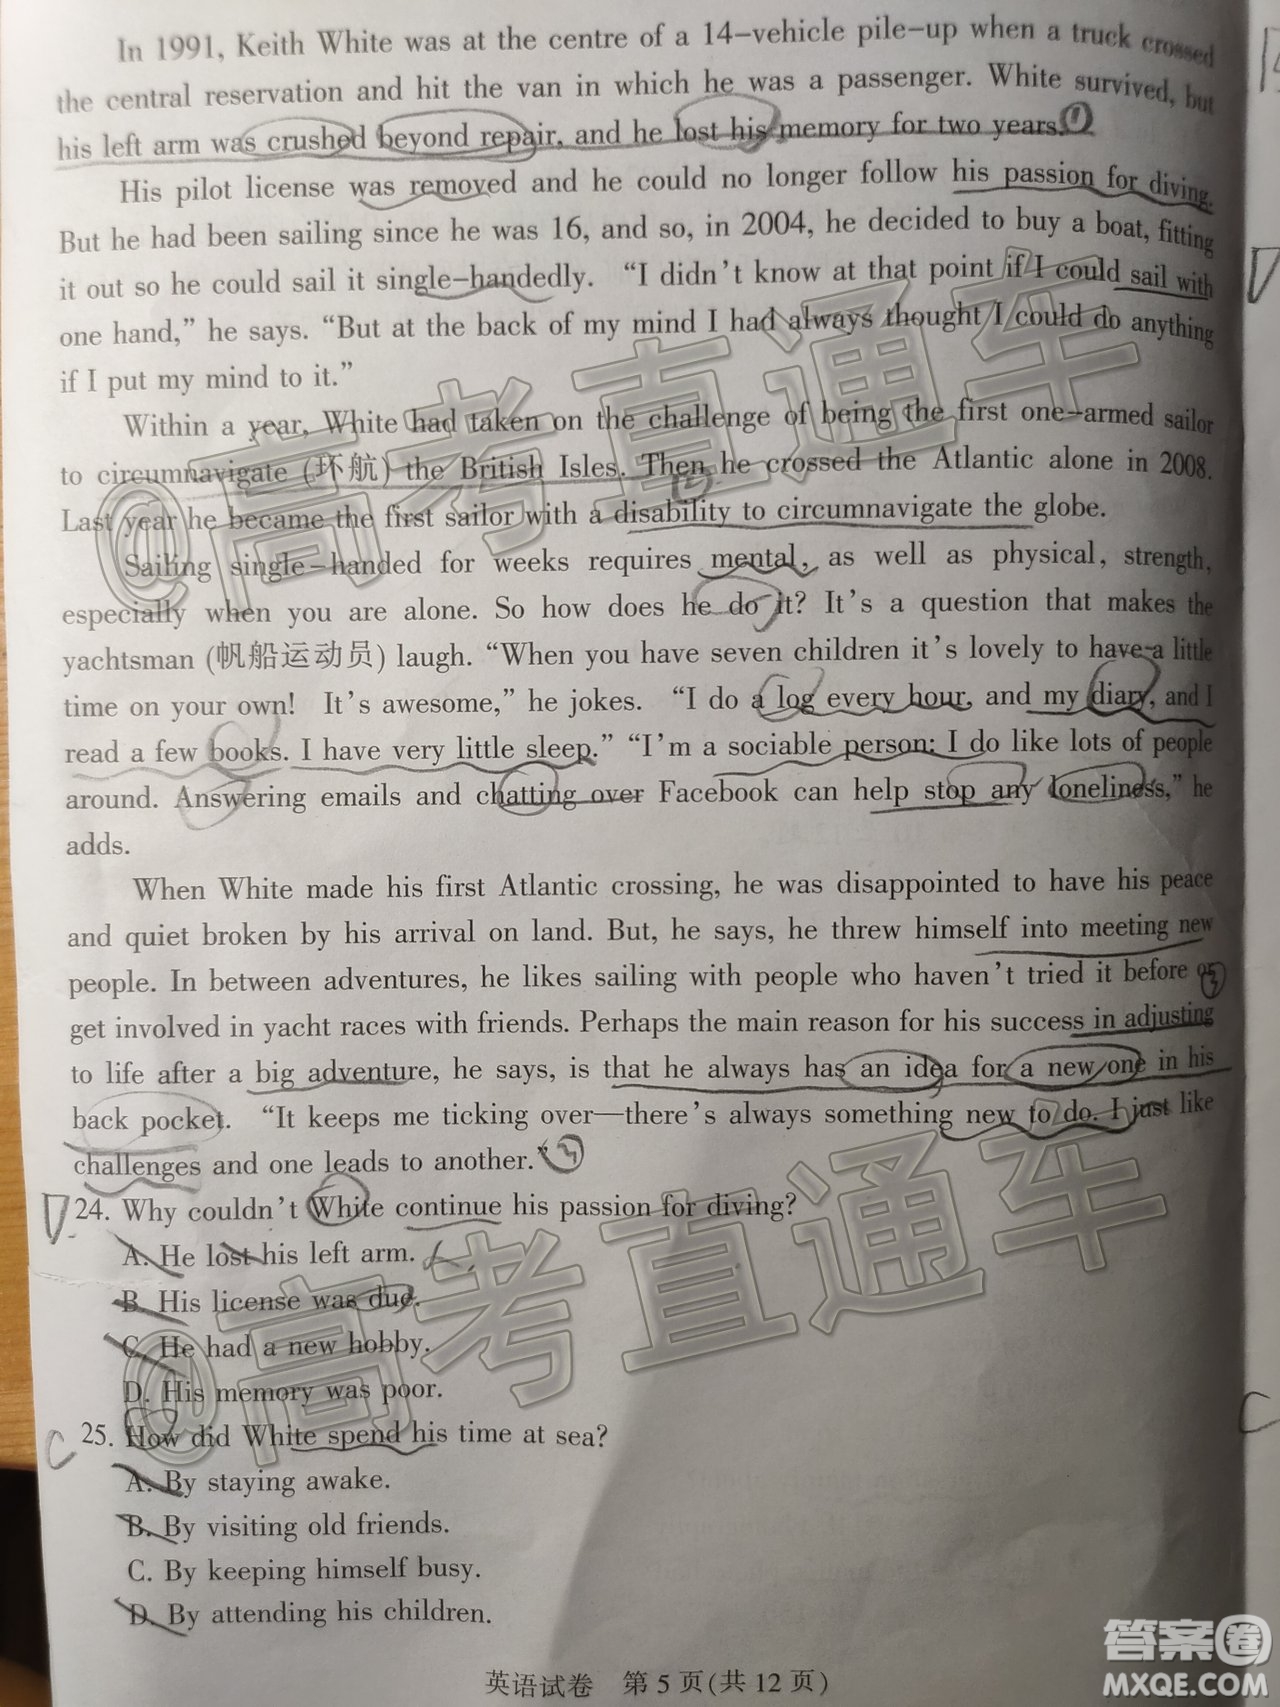 In 1991, Keith White was at the centre of a 14-vehicle pile-up when a truck crossed
the central reservation and hit the van in which he was a passenger. White survived, but
his left arm was crushed beyond repair, and he lost his memory for two years.
His pilot license was removed and he could no longer follow his passion for diving.
But he had been sailing since he was 16, and so, in 2004, he decided to buy a boat, fitting
it out so he could sail it single-handedly. “I didn’t know at that point if I could sail with
one hand,” he says. “But at the back of my mind I had always thought I could do anything
if I put my mind to it.”
Within a year, White had taken on the challenge of being the first one-armed sailor
to circumnavigate (环航) the British Isles. Then he crossed the Atlantic alone in 2008.
Last year he became the first sailor with a disability to circumnavigate the globe.
Sailing single-handed for weeks requires mental, as well as physical, strength,
especially when you are alone. So how does he do it? It’s a question that makes the
yachtsman (帆船运动员) laugh. “When you have seven children it’s lovely to have a little
time on your own! It’s awesome,” he jokes. “I do a log every hour, and my diary, and I
read a few books. I have very little sleep.” “I’m a sociable person: I do like lots of people
around. Answering emails and chatting over Facebook can help stop any loneliness,” he
adds.
When White made his first Atlantic crossing, he was disappointed to have his peace
and quiet broken by his arrival on land. But, he says, he threw himself into meeting new
people. In between adventures, he likes sailing with people who haven’t tried it before or
get involved in yacht races with friends. Perhaps the main reason for his success in adjusting
to life after a big adventure, he says, is that he always has an idea for a new one in his
back pocket. “It keeps me ticking over—there’s always something new to do. I just like
challenges and one leads to another.”
D 24. Why couldn’t White continue his passion for diving?
A. He lost his left arm.
B. His license was due.
C. He had a new hobby.
D. His memory was poor.
C 25. How did White spend his time at sea?
A. By staying awake.
B. By visiting old friends.
C. By keeping himself busy.
D. By attending his children.
英语试卷 第 5 页(共 12 页)
@高考直通车
@高考直通车
答案卷
MXQE.COM